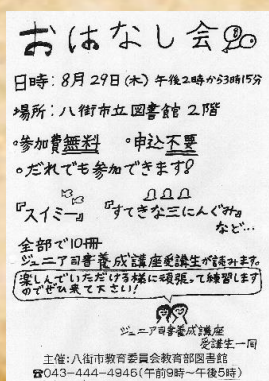 おはなし会
日時:8月29日(木)午後2時から3時15分
場所:八街市立図書館2階
・参加費無料 ・申込不要
・だれでも参加できます!
『スイミー』 『すてきな三にんぐみ』
など…
全部で10冊
ジュニア司書養成講座受講生が読みます。
楽しんでいただける様に頑張って練習します
のでぜひ来て下さい!
ジュニア司書養成講座
受講生一同
主催:八街市教育委員会教育部図書館
☎043-444-4946(午前9時〜午後5時)